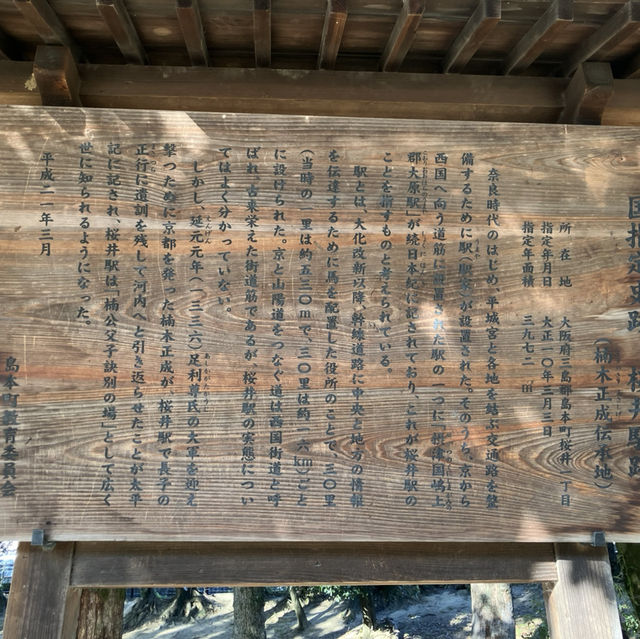 国指定史跡 桜井駅跡
（楠木正成伝承地）
所在地 大阪府三島郡島本町桜井一丁目
指定年月日 大正一〇年三月三日
指定年面積 三九七二㎡
奈良時代のはじめ、平城宮と各地を結ぶ交通路を整
備するために駅（駅家）が設置された。そのうち、京から
西国へ向う道筋に設置された駅の一つに「摂津国嶋上
郡大原駅」が続日本紀に記されており、これが桜井駅の
ことを指すものと考えられている。
駅とは、大化改新以降、幹線道路に中央と地方の情報
を伝達するために馬を配置した役所のことで、三〇里
（当時の一里は約五三〇ｍで、三〇里は約一六㎞）ごと
に設けられた。京と山陽道をつなぐ道は西国街道と呼
ばれ、古来栄えた街道筋であるが、桜井駅の実態につい
てはよく分かっていない。
しかし、延元元年（一三三六）足利尊氏の大軍を迎え
撃つために京都を発った楠木正成が、桜井駅で長子の
正行に遺訓を残して河内へと引き返らせたことが太平
記に記され、桜井駅は「楠公父子訣別の場」として広く
世に知られるようになった。
平成二一年三月
島本町教育委員会